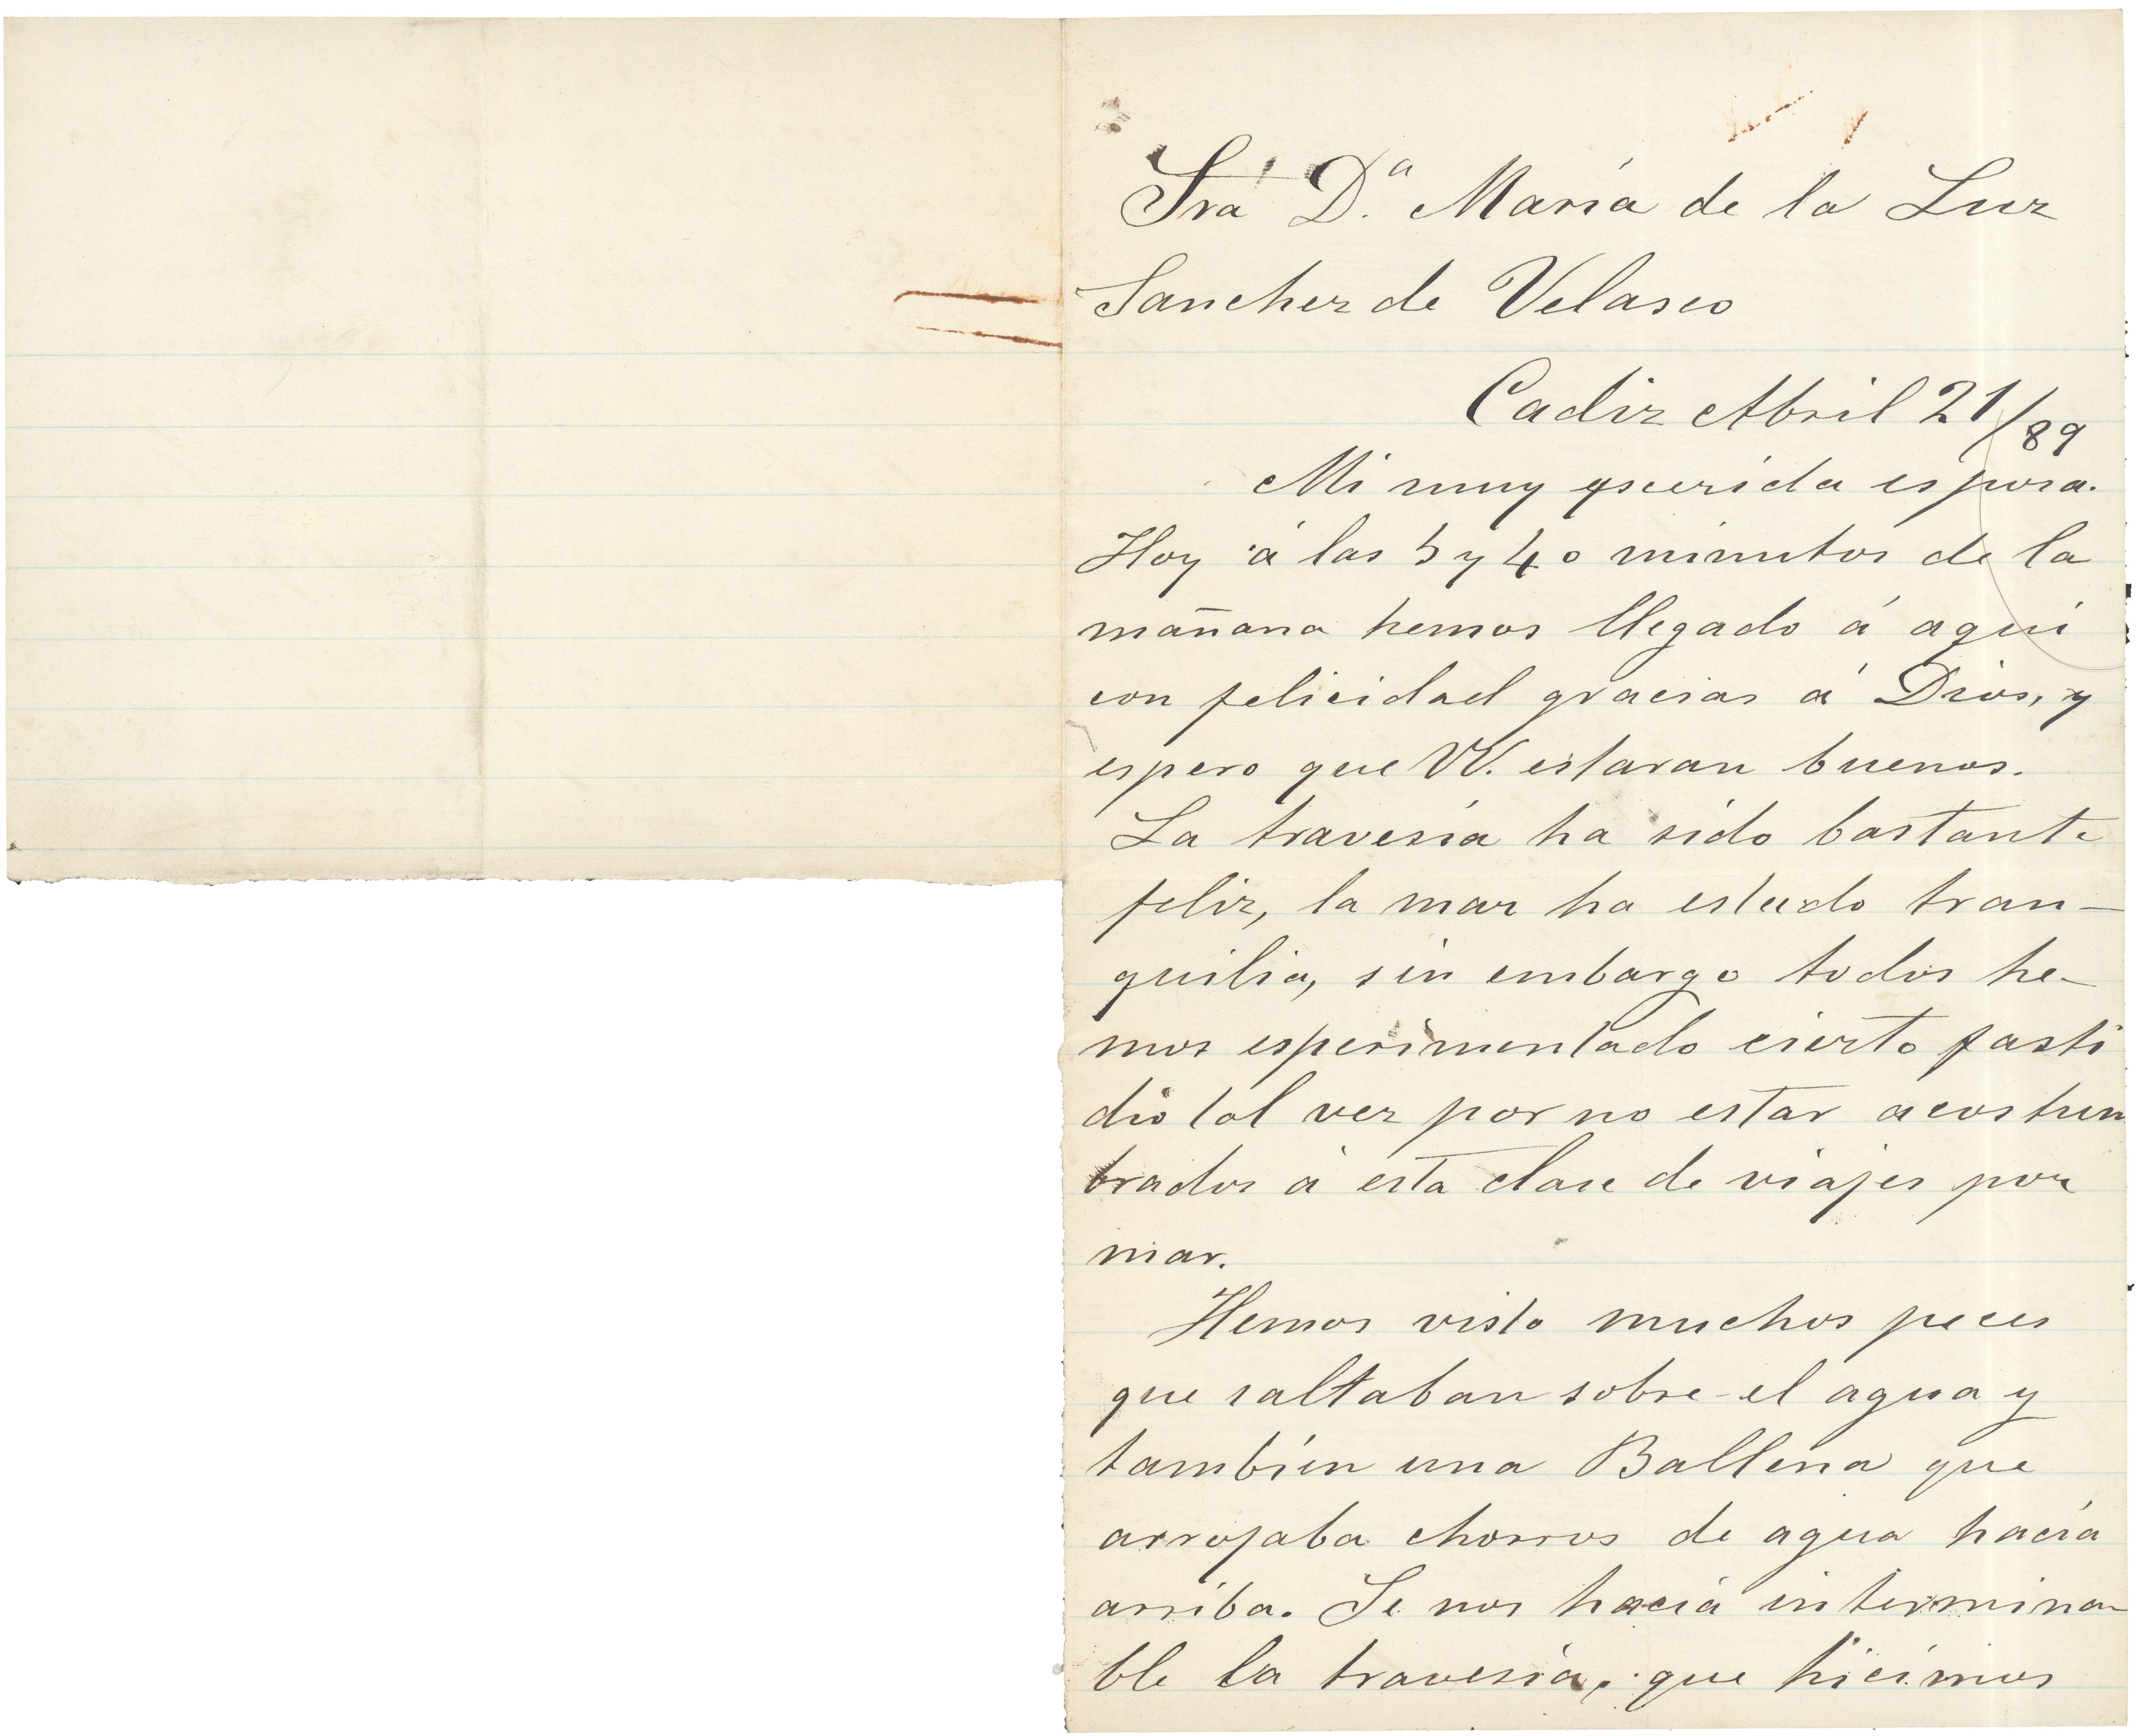 Sra D.ª María de la Luz
Sanchez de Velasco
Cadiz Abril 21/89
Mi muy querida esposa.
Hoy á las 5 y 40 minutos de la
mañana hemos llegado á aquí
con felicidad gracias á Dios, y
espero que VV. estaran buenos.
La travesía ha sido bastante
feliz, la mar ha estado tran-
quilia, sin embargo todos he-
mos esperimentado cierto fasti
dio tal vez por no estar acostum
brados á esta clase de viajes por
mar.
Hemos visto muchos peces
que saltaban sobre el agua y
también una Ballena que
arrojaba chorros de agua hacía
arriba. Se nos hacía intermina-
ble la travesía, que hicimos